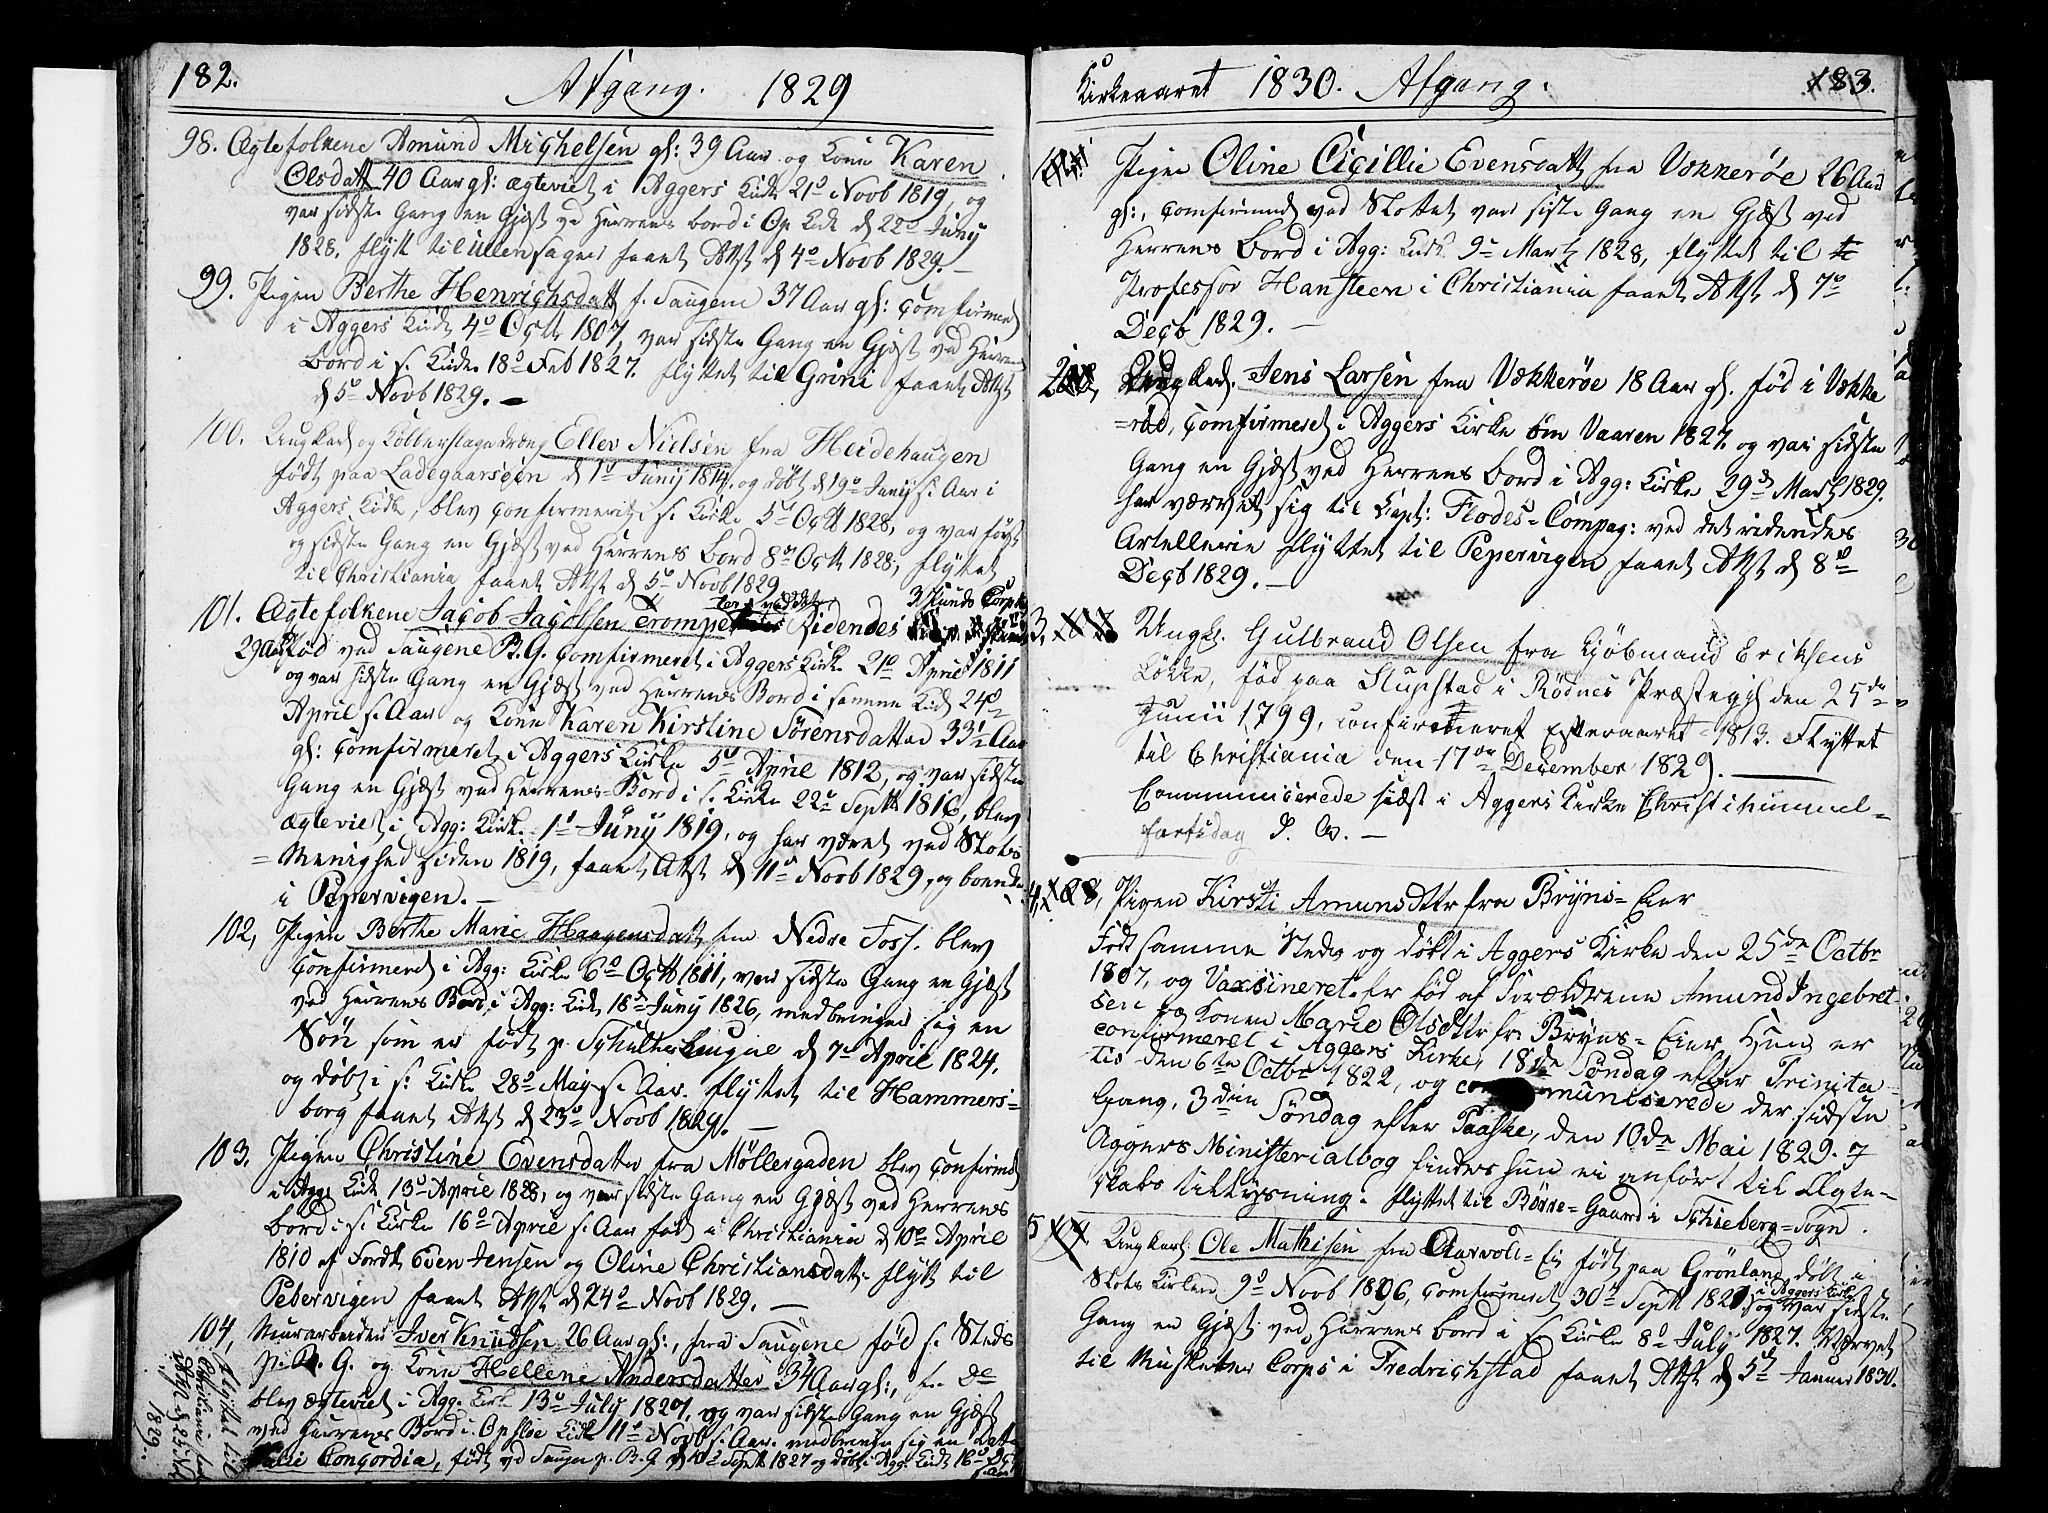 182.
Afgang. 1829
98. Ægtefolkene Amund Michelsen gl: 39 Aar og Kone Karen
Olsdatt 40 Aar gl: ægteviet i Aggers Kirk 21d Novb 1819, og
var sidste Gang en Gjæst ved Herrens bord i Op Kirk d 22d Juny
1828. flytt til Ullensager faaet Attst d 4d Novb 1829. —
99. Pigen Berthe Henrichsdatt f. Saugene 37 Aar gl: Comfirmered
i Aggers Kirk 4d Octb 1807, var sidste Gang en Gjæst ved Herrens
Bord i s. Kirke 18d Feb 1827. flyttet til Grini faaet Attst
d 5d Novb 1829. —
100. Ungkarl og Kobberslagerdreng Ellev Nielsen fra Heidehaugen
født paa Ladegaarsøen d 1d Juny 1814. og døbt d 19d Juny s. Aar i
Aggers Kirk, blev Confirmeret i s. Kirke 5d Octb 1828, og var først
og sidste Gang en Gjæst ved Herrens Bord 8d Octb 1828, flyttet
til Christiania faaet Attst d 5d Novb 1829
101. Ægtefolkene Jacob Jacobsen Trompe ter ved det Ridendes
29 Aar Fød ved Saugene B. G. Comfirmeret i Aggers Kirke 21d April 1811
og var sidste Gang en Gjæst ved Herrens Bord i samme Kirk 24d
April s. Aar og Kone Karen Kirstine Sörensdatter 33½ Aar
gl: Comfirmeret i Aggers Kirke 5d April 1812, og var sidste
Gang en Gjæst ved Herrens Bord i s. Kirke 22d Septb 1816, blev
ægteviet i Agg: Kirk 1d Juny 1819, og har været ved Slots
= Menighed siden 1819, faaet Attst d 11d Novb 1829, og boende
i Pepervigen. —
102, Pigen Berthe Marie Haagensdatt fra Nedre Foss. blev
Confirmered i Agg: Kirke 6d Octb 1811, var sidste Gang en Gjæst
ved Herrens Bord i Agg: Kirk 18d Juny 1826, medbringer sig en
Søn som er født p. Schulterhaugne d 7d April 1824.
og døbt i s: Kirke 28d May s. Aar. flyttet til Hammers=
borg faaet Attst d 23d Novb 1829. —
103. Pigen Christine Evensdatter fra Møllergaden blev Confirmd
i Agg: Kirk 13d April 1828, og var sidste Gang en Gjæst ved Herrens
bord i s. Kirke 16d April s. Aar fød i Christiania d 10d April
1810 af Forældr Even Jensen og Oline Christiansdatt. flytt til
Pebervigen faaet Attst d 24d Novb 1829. —
104, Murarbeider Iver Knudsen 26 Aar gl:, fra Saugene fød s. Steds
p. B. G. og Kone Hellene Andersdatter 34 Aar gl:, fr. De
blev ægteviet i Agg. Kirk 13d July 1827, og var sidste Gang en Gjæst
ved Herrens Bord i Opsloe Kirk 11d Novb s. Aar. medbringer sig en Datter
Concordia, født ved Saugen p. B. G d Septb 1827 og døbt i Agg: Kirk 16d
s. Aar
flyttet til
Christiania
Attst d 25d Nov
1829.
Kirkeaaret 1830. Afgang. 183.
Pigen Oline Cicillie Evensdatt fra Vækkerøe 26 Aar
gl:, Comfirmered ved Slottet var siste Gang en Gjæst ved
Herrens Bord i Agg: Kirk 9d Martz 1828, flyttet til
Professor Hansteen i Christiania faaet Attst d 7d
Decb 1829. —
2 Ungkarl. Jens Larsen fra Vækkerøe 18 Aar gl. fød i Vække
=röd, Comfirmeret i Aggers Kirke om Vaaren 1827 og var sidste
Gang en Gjæst ved Herrens Bord i Agg: Kirke 29d Martz 1829.
har værvet sig til Capt: Flodes=Compag: ved det ridendes
Artellerie flyttet til Pepervigen faaet Attst d 8d
Decb 1829. —
3, Ungk. Gulbrand Olsen fra Kjøbmand Eriksens
Løkke, fød paa Slupstad i Rødnes Præstegjl den 25de
Junii 1799, confirmeret Efteraaret 1813. Flyttet
til Christiania den 17de December 1829. —
Communicerede sidst i Aggers Kirke Christihimmel=
fartsdag d. A. —
4, Pigen Kirsti Amunsdttr fra Bryns=Eier
Født samme Steds og døbt i Aggers Kirke den 25de Octbr
1807, og Vaxsineret. Er fød af Forældrene Amund Ingebret=
sen og Konen Marie Olsdttr fr. Bryns=Eier. Hun er
confirmeret i Aggers Kirke, 18de Søndag efter Trinita=
tis den 6te Octbr 1822, og communiserede der sidste
Gang, 3die Søndag efter Paaske, den 10de Mai 1829. I
Aggers Ministerialbog findes hun ei anført til Ægte=
skabs tillysning. flyttet til Börre=Gaard i Schieberg=Sogn.
5 Ungkarl Ole Mathisen fra Aarvold=Ei født paa Grönland, døbt i
Slots Kirken 9d Novb 1806, Comfirmeret 30d Septb 182 i Aggers Kirk og var sidste
Gang en Gjæst ved Herrens Bord i s. Kirke 8d July 1827. Værvet
til Musketer Corps i Fredrichstad faaet Attst d 5d Januar 1830.